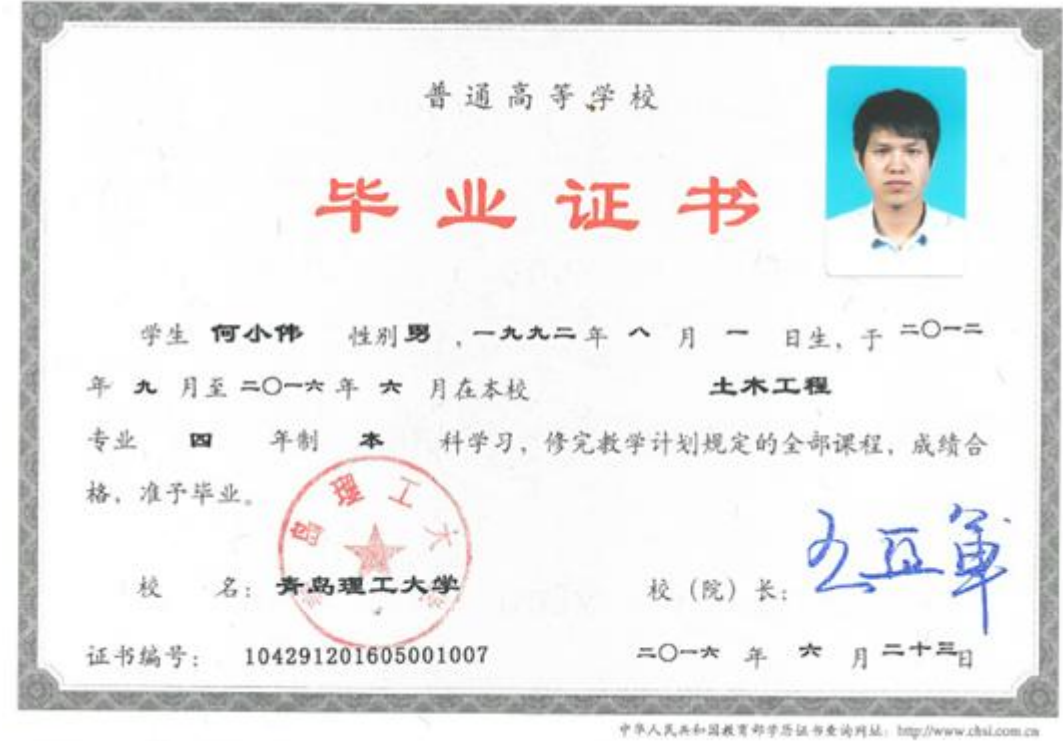 普通高等学校
毕业证书
学生 何小伟 性别 男 ，一九九二 年 八 月 一 日生，于 二〇一二
年 九 月至 二〇一六 年 六 月在本校 土木工程
专业 四 年制 本 科学习，修完教学计划规定的全部课程，成绩合
格，准予毕业。
校 名：青岛理工大学 校（院）长：
证书编号： 104291201605001007 二〇一六 年 六 月 二十三日
中华人民共和国教育部学历证书查询网址：http://www.chsi.com.cn